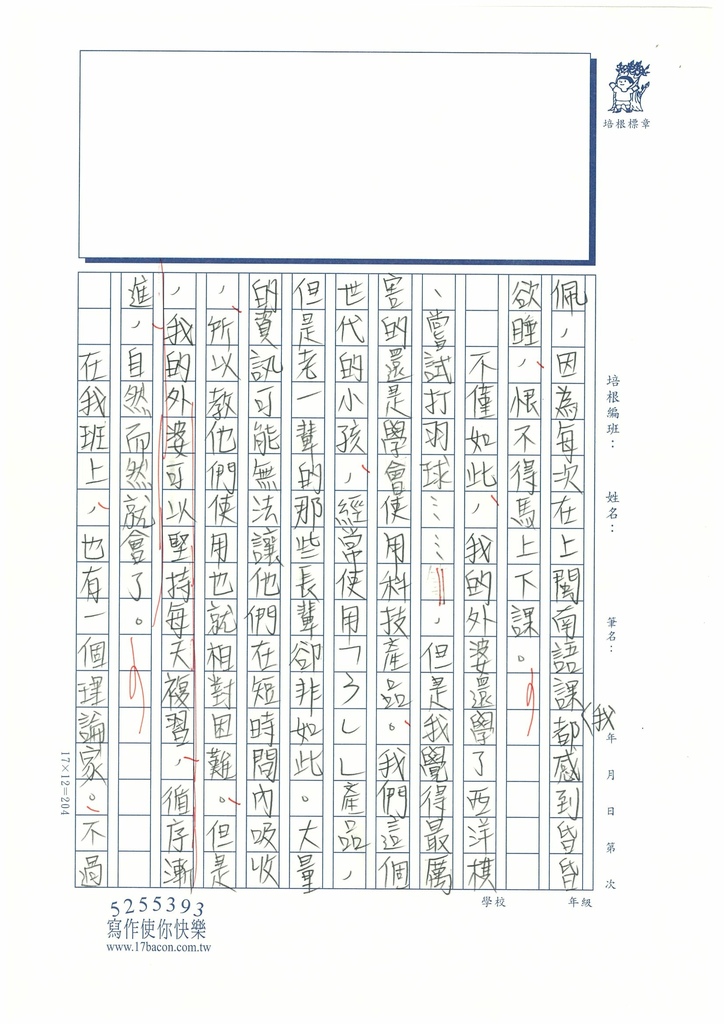 培根標章
培根編班： 姓名： 筆名： 年 月 日 第 次
學校 年級
佩，因為每次在上閩南語課我都感到昏昏
欲睡，恨不得馬上下課。
不僅如此，我的外婆還學了西洋棋
、嘗試打羽球……，但是我覺得最厲
害的還是學會使用科技產品。我們這個
世代的小孩，經常使用「3C」產品，
但是老一輩的那些長輩卻非如此。大量
的資訊可能無法讓他們在短時間內吸收
，所以教他們使用也就相對困難。但是
，我的外婆可以堅持每天複習，循序漸
進，自然而然就會了。
在我班上，也有一個理論家。不過
17×12=204
5255393
寫作使你快樂
www.17bacon.com.tw